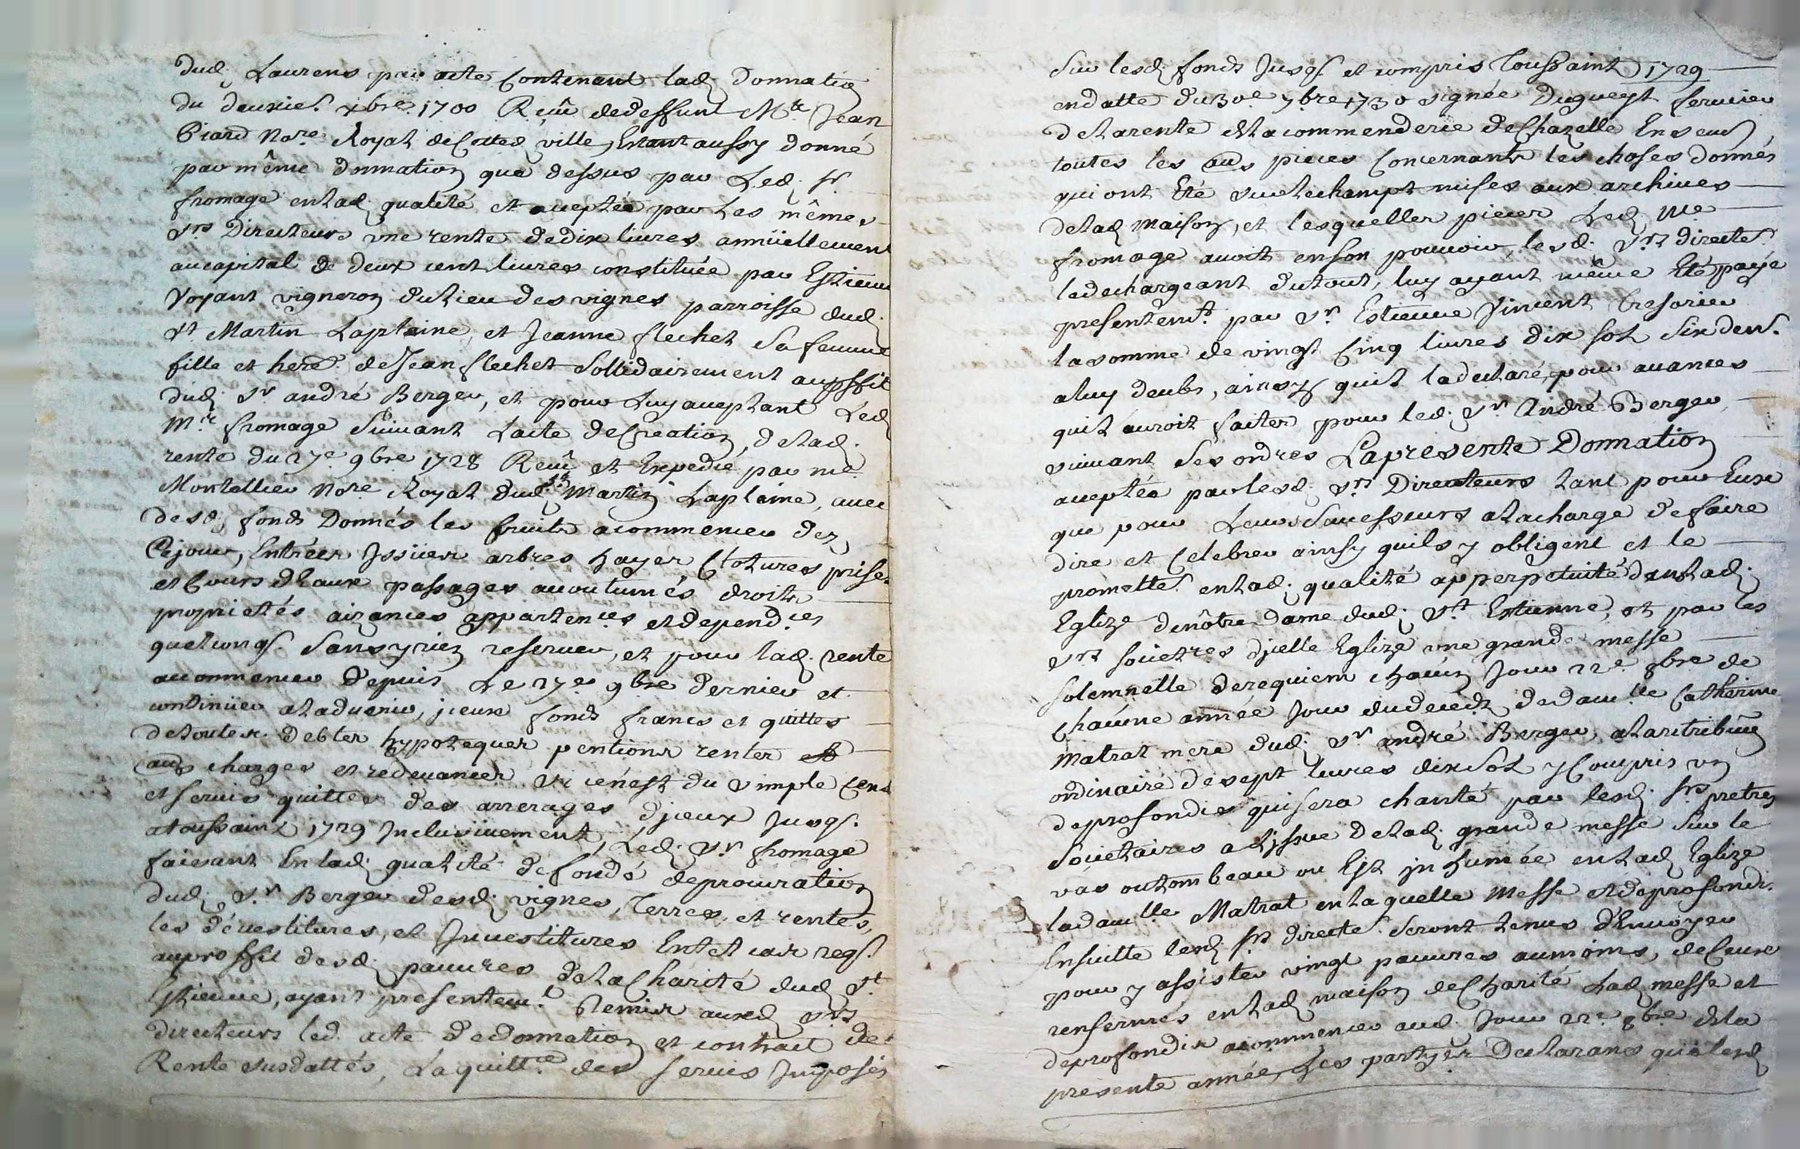 dud. Laurens par acte Contenant lad. Donnation
du deuxies. xbre 1700 Reçû dedeffunt Mtr. Jean
Picard Nore. Royal de Cetted. ville, Estant aussy donné
par même donnation que dessus par Led. Sr.
fromage enlad. qualité et aceptée par les mêmes
Srs Directeurs une rente dedix livres annüellement
aucapital de deux cent livres constituée par Estienne
Voyant vigneron dulieu des vignes parroisse dud.
St Martin Laplaine, et Jeanne flechet Sa femme
fille et here. deJean flechet Sollidairement auproffit
dud. Sr andré Berger, et pour Luy aceptant Led.
Mre fromage Suivant Lacte decreation, delad.
rente du 27e 9bre 1728 Reçû et Expedié par me
Montellier Nore Royal dud. St Martin Laplaine, avec
desd. fonds Donnés les fruits acommencer dez
Cejour, Entrées Jssües arbres hayes Clotures prises
et Cours d'Eaux passages accoutumés droits
proprietés aizances appartences. et depend.ces
quelconqs. Sans y rien reserver, et pour lad. rente
acommencer depuis Le 27e 9bre dernier et
continüer aladvenir, jceux fonds francs et quittes
detoutes debtes hypoteques pentions rentes
auds charges et redevances Si cen'est du Simple Cens
et servis quittes des arrerages djceux Jusqs.
atoussaint 1729 Jnclusivement, Led. Sr fromage
faisant En lad. qualité defondé deprocuration
dud. Sr Berger desd. vignes, Terres, et rentes,
les dévestitures, et Jnvestitures Entel cas reqs.
auproffit desd. pauvres dela Charité dud. St
Estienne, ayant presentemt. Remis auxd. Srs
directeurs led. acte dedonnation et contrait de
Rente susdattés, Laquittce. des servis Jmposés
Sur lesd. fonds Jusqs. et compris Toussaint 1729
endatte du 30e 7bre 1730 signée Dugueyt fermier
delarente dela commenderie deChazelle Ensemb.
toutes les auds pieces Concernants les choses donnés
qui ont Eté Surlechampt mises aux archives
delad. maison, et lesquelles pieces Led. Me
fromage avoit enson pouvoir lesd. Srs directes.
ledechargeant dutout, luy ayant même Eté payé
presentemt. par Sr Estienne Vincent tresorier
lasomme de vingt Cinq livres dix sol Six dens.
aluy deubs, ainsy quil ladeclaré, pour avances
quil auroit faites pour led. Sr André Berger
suivant Ses ordres Lapresente Donnation
aceptée parlesd. Srs Directeurs tant pour Eux
que pour Leurs Sucesseurs alacharge defaire
dire et Celebrer ainsy quils y obligent et le
promette. enlad. qualité apperpetuité danslad.
Eglize denôtre dame dud. St Estienne, et par les
Srs Societres. djcelle Eglize une grande messe
Solemnelle derequiem chacun Jour 22e 8bre de
Chacune année Jour dudecedz dedamlle Catherine
Matrat mere dud. Sr andré Berger, alaretribûon
ordinaire desept livres dix sol y Compris un
deprofondis quisera chanté par lesd. Srs pretres
Societaires alissue delad. grande messe Sur le
vas outombeau ou Est jnhumée enlad. Eglize
ladamlle Matrat enlaquelle Messe etdeprofondis.
Ensuitte lesd. Srs directs. Seront tenus d'Envoyer
pour y assister vingt pauvres aumoins, deCeux
renfermés enlad. maison deCharité Lad. messe et
deprofondis acommencer aud. Jour 22e 8bre dela
presente année, Les partyes Declarans quelesd